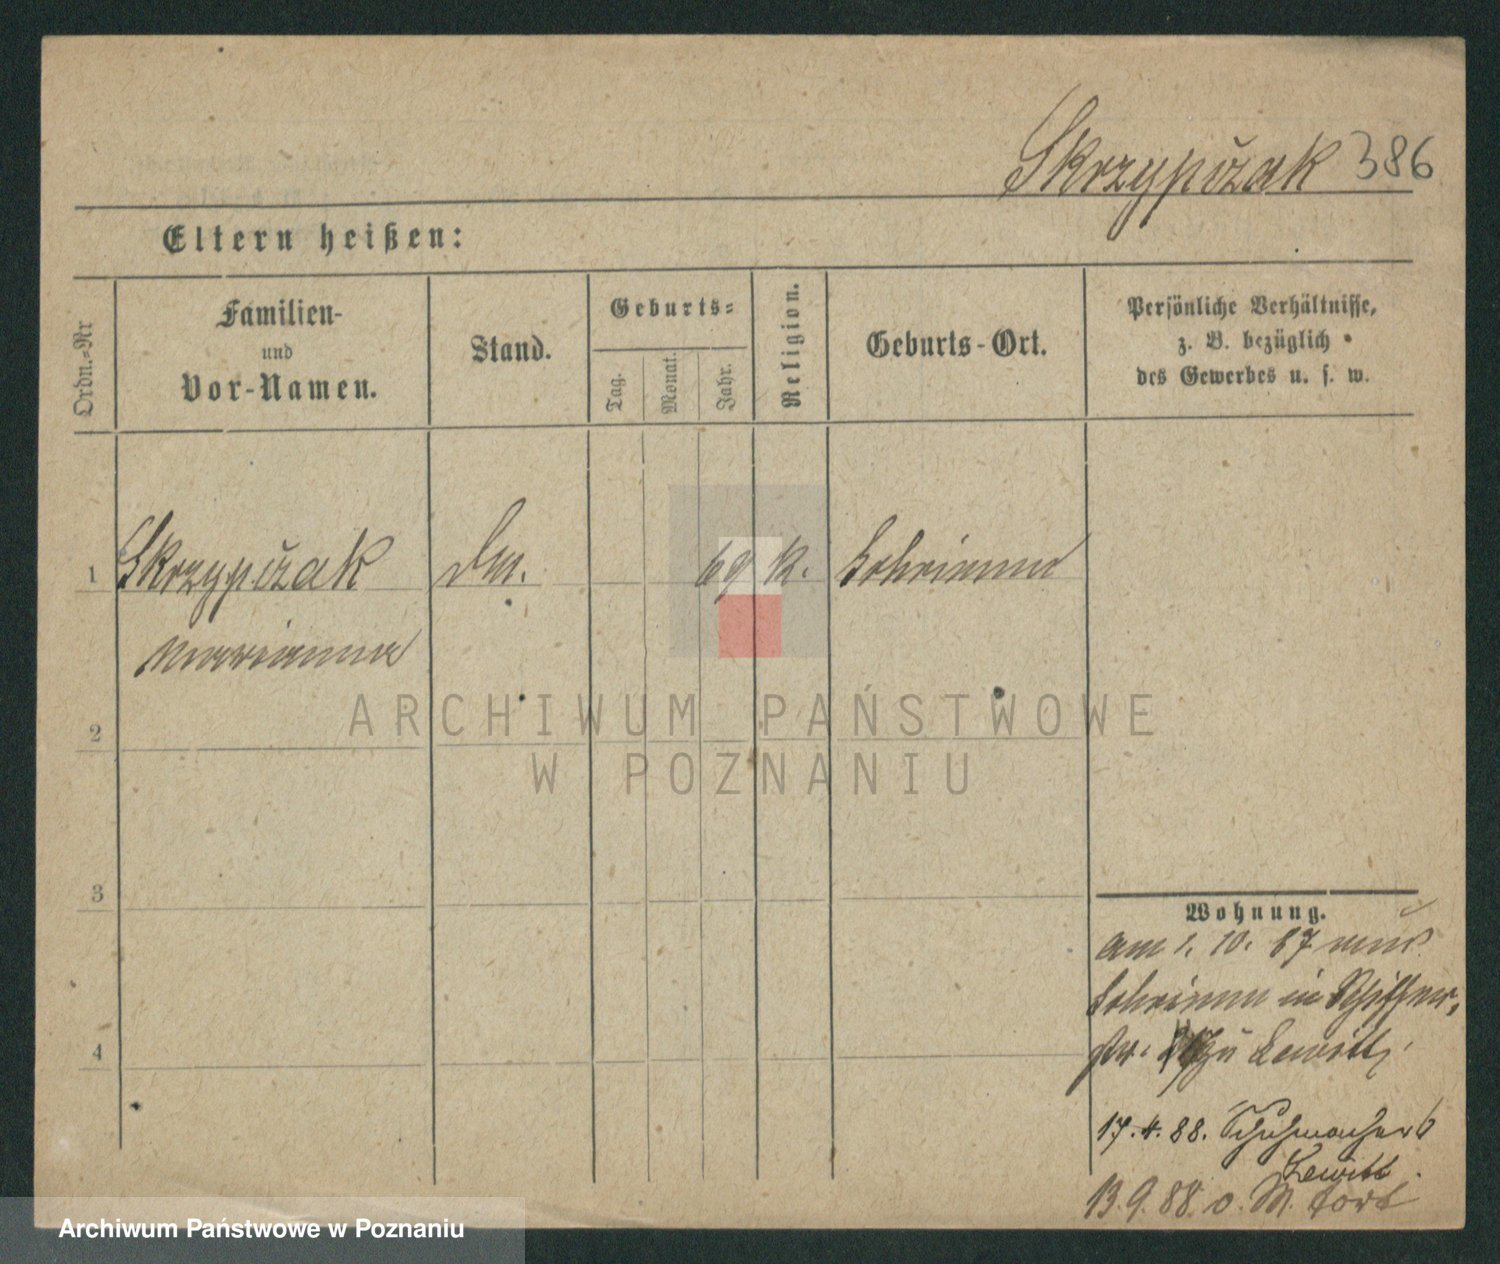 Skrzypczak 386
Eltern heißen:
Ordn.-Nr
Familien-
und
Vor-Namen.
Stand.
Geburts-
Tag.
Monat.
Jahr.
Religion.
Geburts-Ort.
Persönliche Verhältnisse,
z. B. bezüglich
des Gewerbes u. s. w.
1 Skrzypczak 69 k. Schrimm
Marianna
2
3
4
Wohnung.
am 1. 10. 87 aus
Schrimm in Schiffer-
str. zu Lewitt,
17.4.88. Schuhmacher 6
Lewitt.
13.9.88. o. M. fort
ARCHIWUM PAŃSTWOWE
W POZNANIU
Archiwum Państwowe w Poznaniu